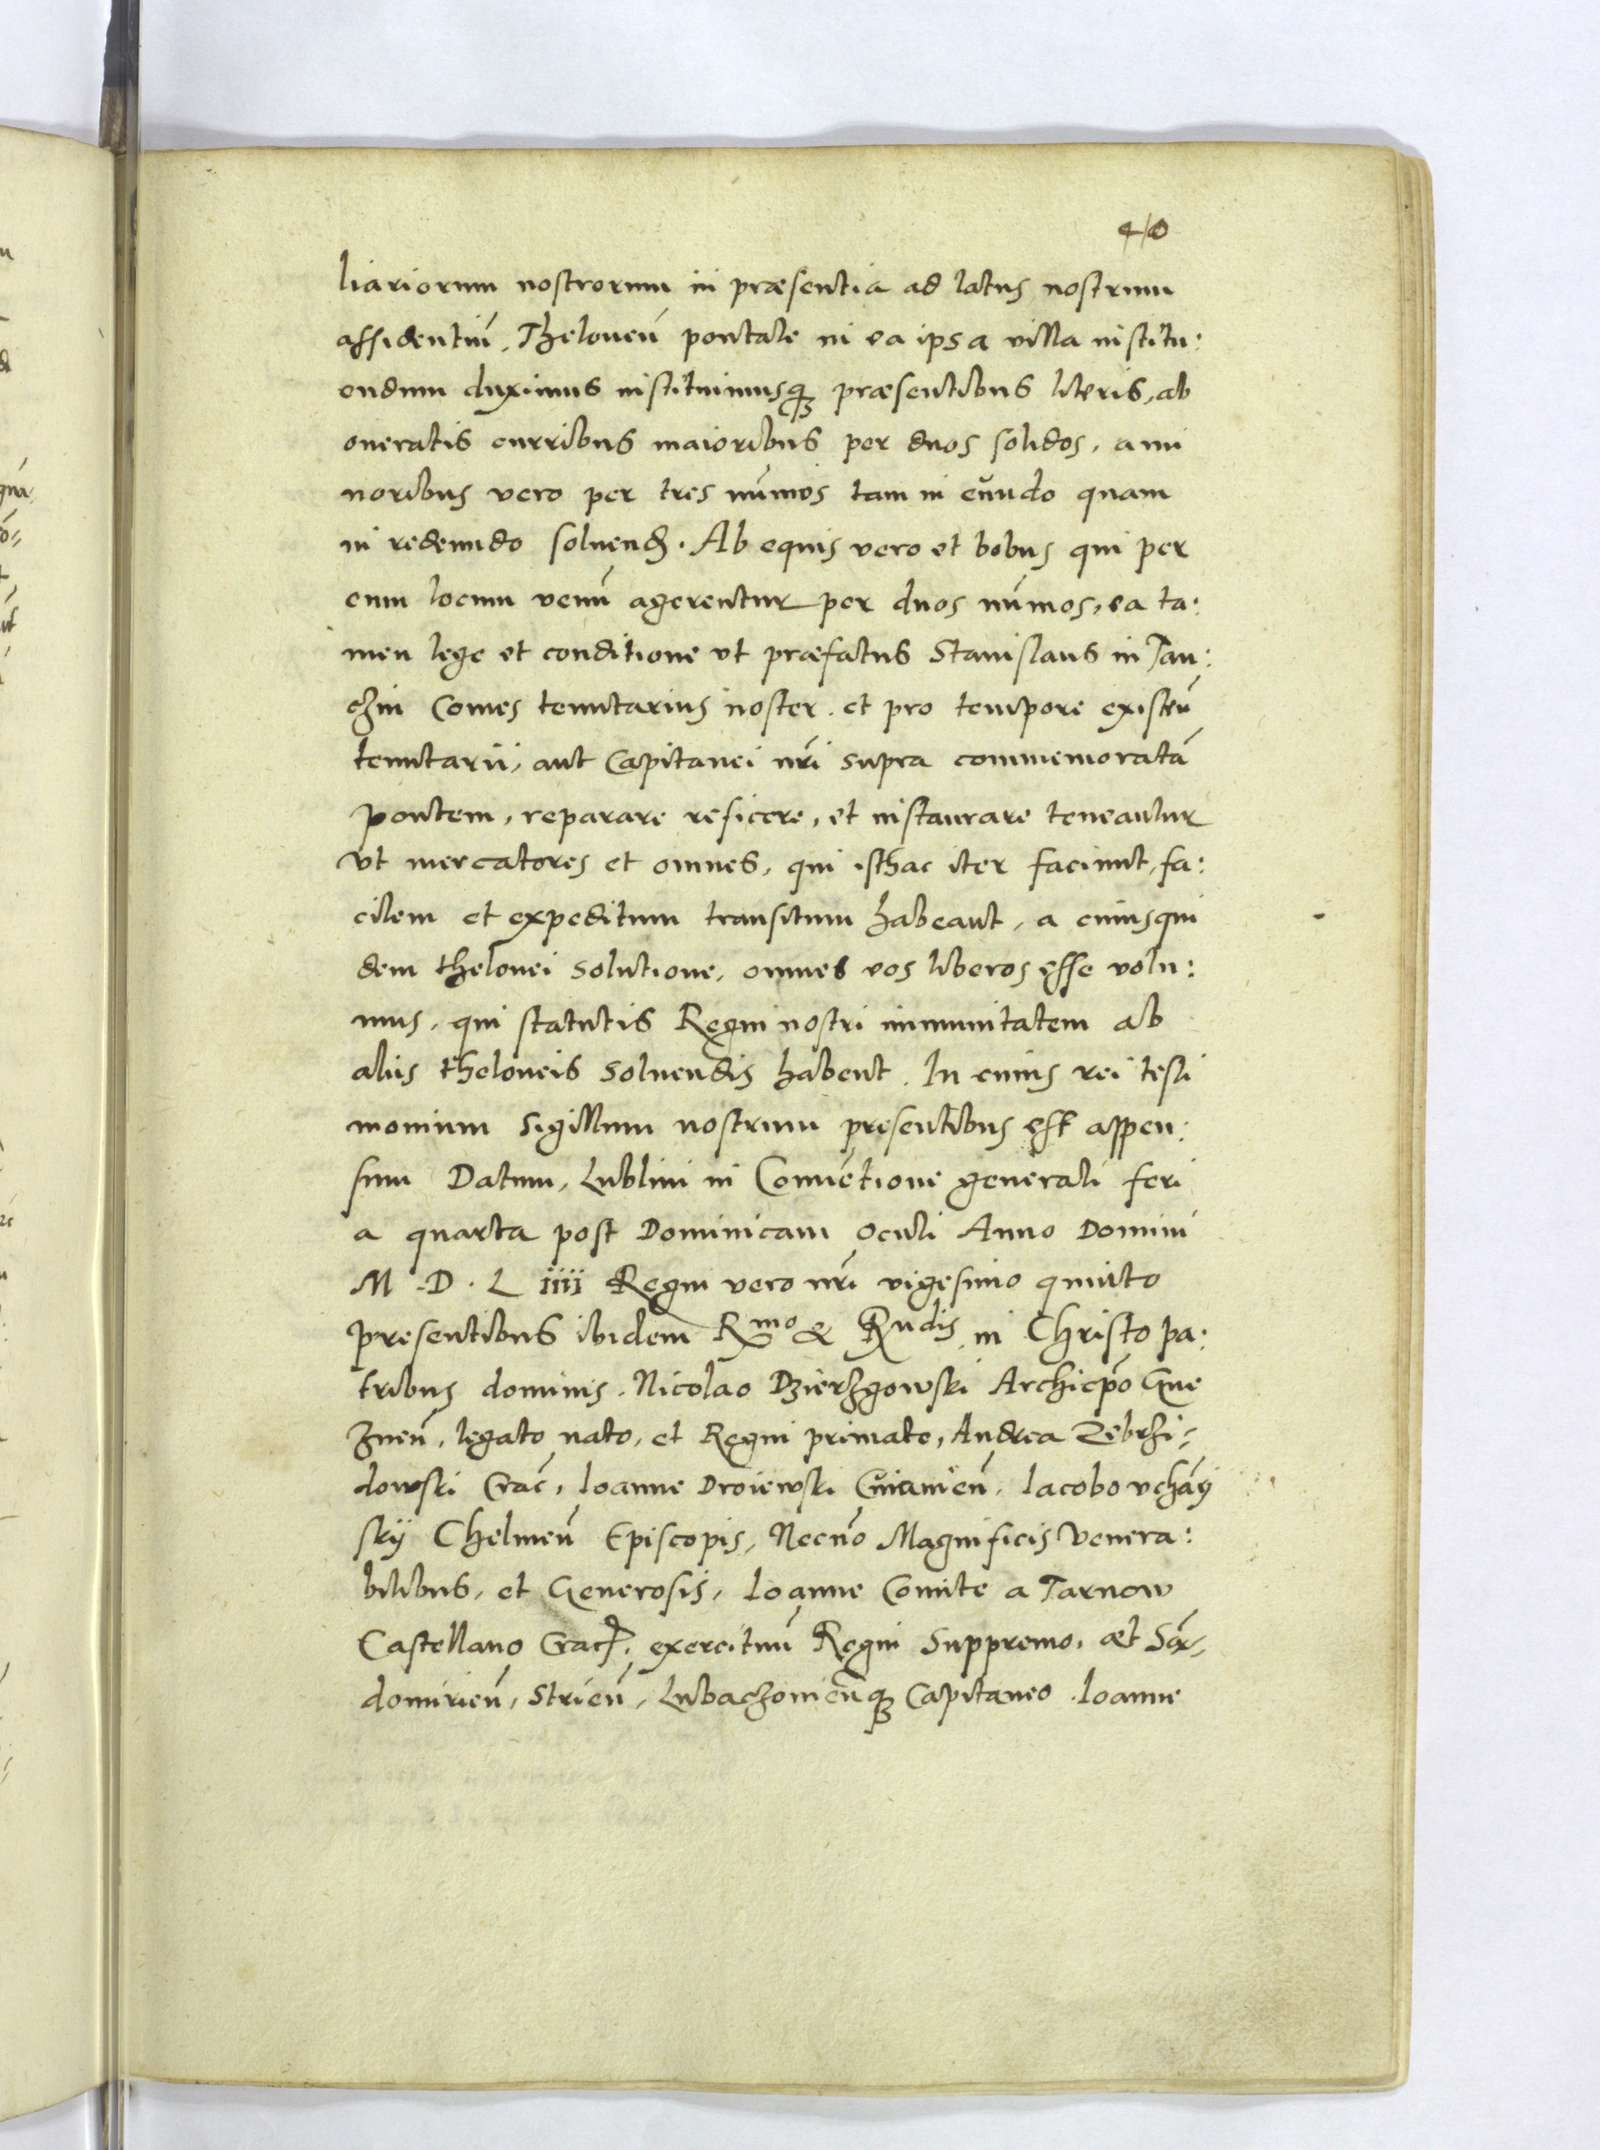 40
liariorum nostrorum in præsentia ad latus nostrum
assidentiū, Theloneū pontale in ea ipsa villa institu:
endum duximus instituimusqꝫ præsentibus literis, ab
oneratis curribus maioribus per duos solidos, a mi
noribus vero per tres nūmos tam in eūndo quam
in redeundo soluenđ. Ab equis vero et bobus qui per
eum locum venū agerentur per duos nūmos, ea ta:
men lege et conditione vt præfatus Stanislaus in Tan:
czin Comes tenutarius noster. et pro tempore existeñ
tenutarii, aut Capitanei nr̃i supra commemoratā
pontem, reparare reficere, et instaurare teneantur
vt mercatores et omnes, qui isthac iter faciunt, fa:
cilem et expeditum transitum habeant, a cuiusqui
dem thelonei solutione, omnes eos liberos esse volu:
mus, qui statutis Regni nostri immunitatem ab
aliis theloneis soluendis habent. In cuius rei testi
monium sigillum nostrum presentibus est appen:
sum Datum, Lublini in Conuētione generali feri
a quarta post Dominicam Oculi Anno Domini
M . D . L iiii Regni vero nr̃i vigesimo quinto
presentibus ibidem Rmo & Rndis in Christo pa:
tribus dominis. Nicolao Dzierzgowski Archiep̄o Gne
zneñ, legato nato, et Regni primate, Andrea Zebrzi-
dowski Crac̄, Ioanne Droiewski Cuiauieñ, Iacobo vchāÿ
skÿ Chelmeñ Episcopis, Necñō Magnificis Venera:
bilibus, et Generosis, Ioanne Comite a Tarnow
Castellano Crac̄, exercituū Regni Suppremo, et Sā-
domirieñ, Strieñ, Lubaczouieñqꝫ Capitaneo. Ioanne